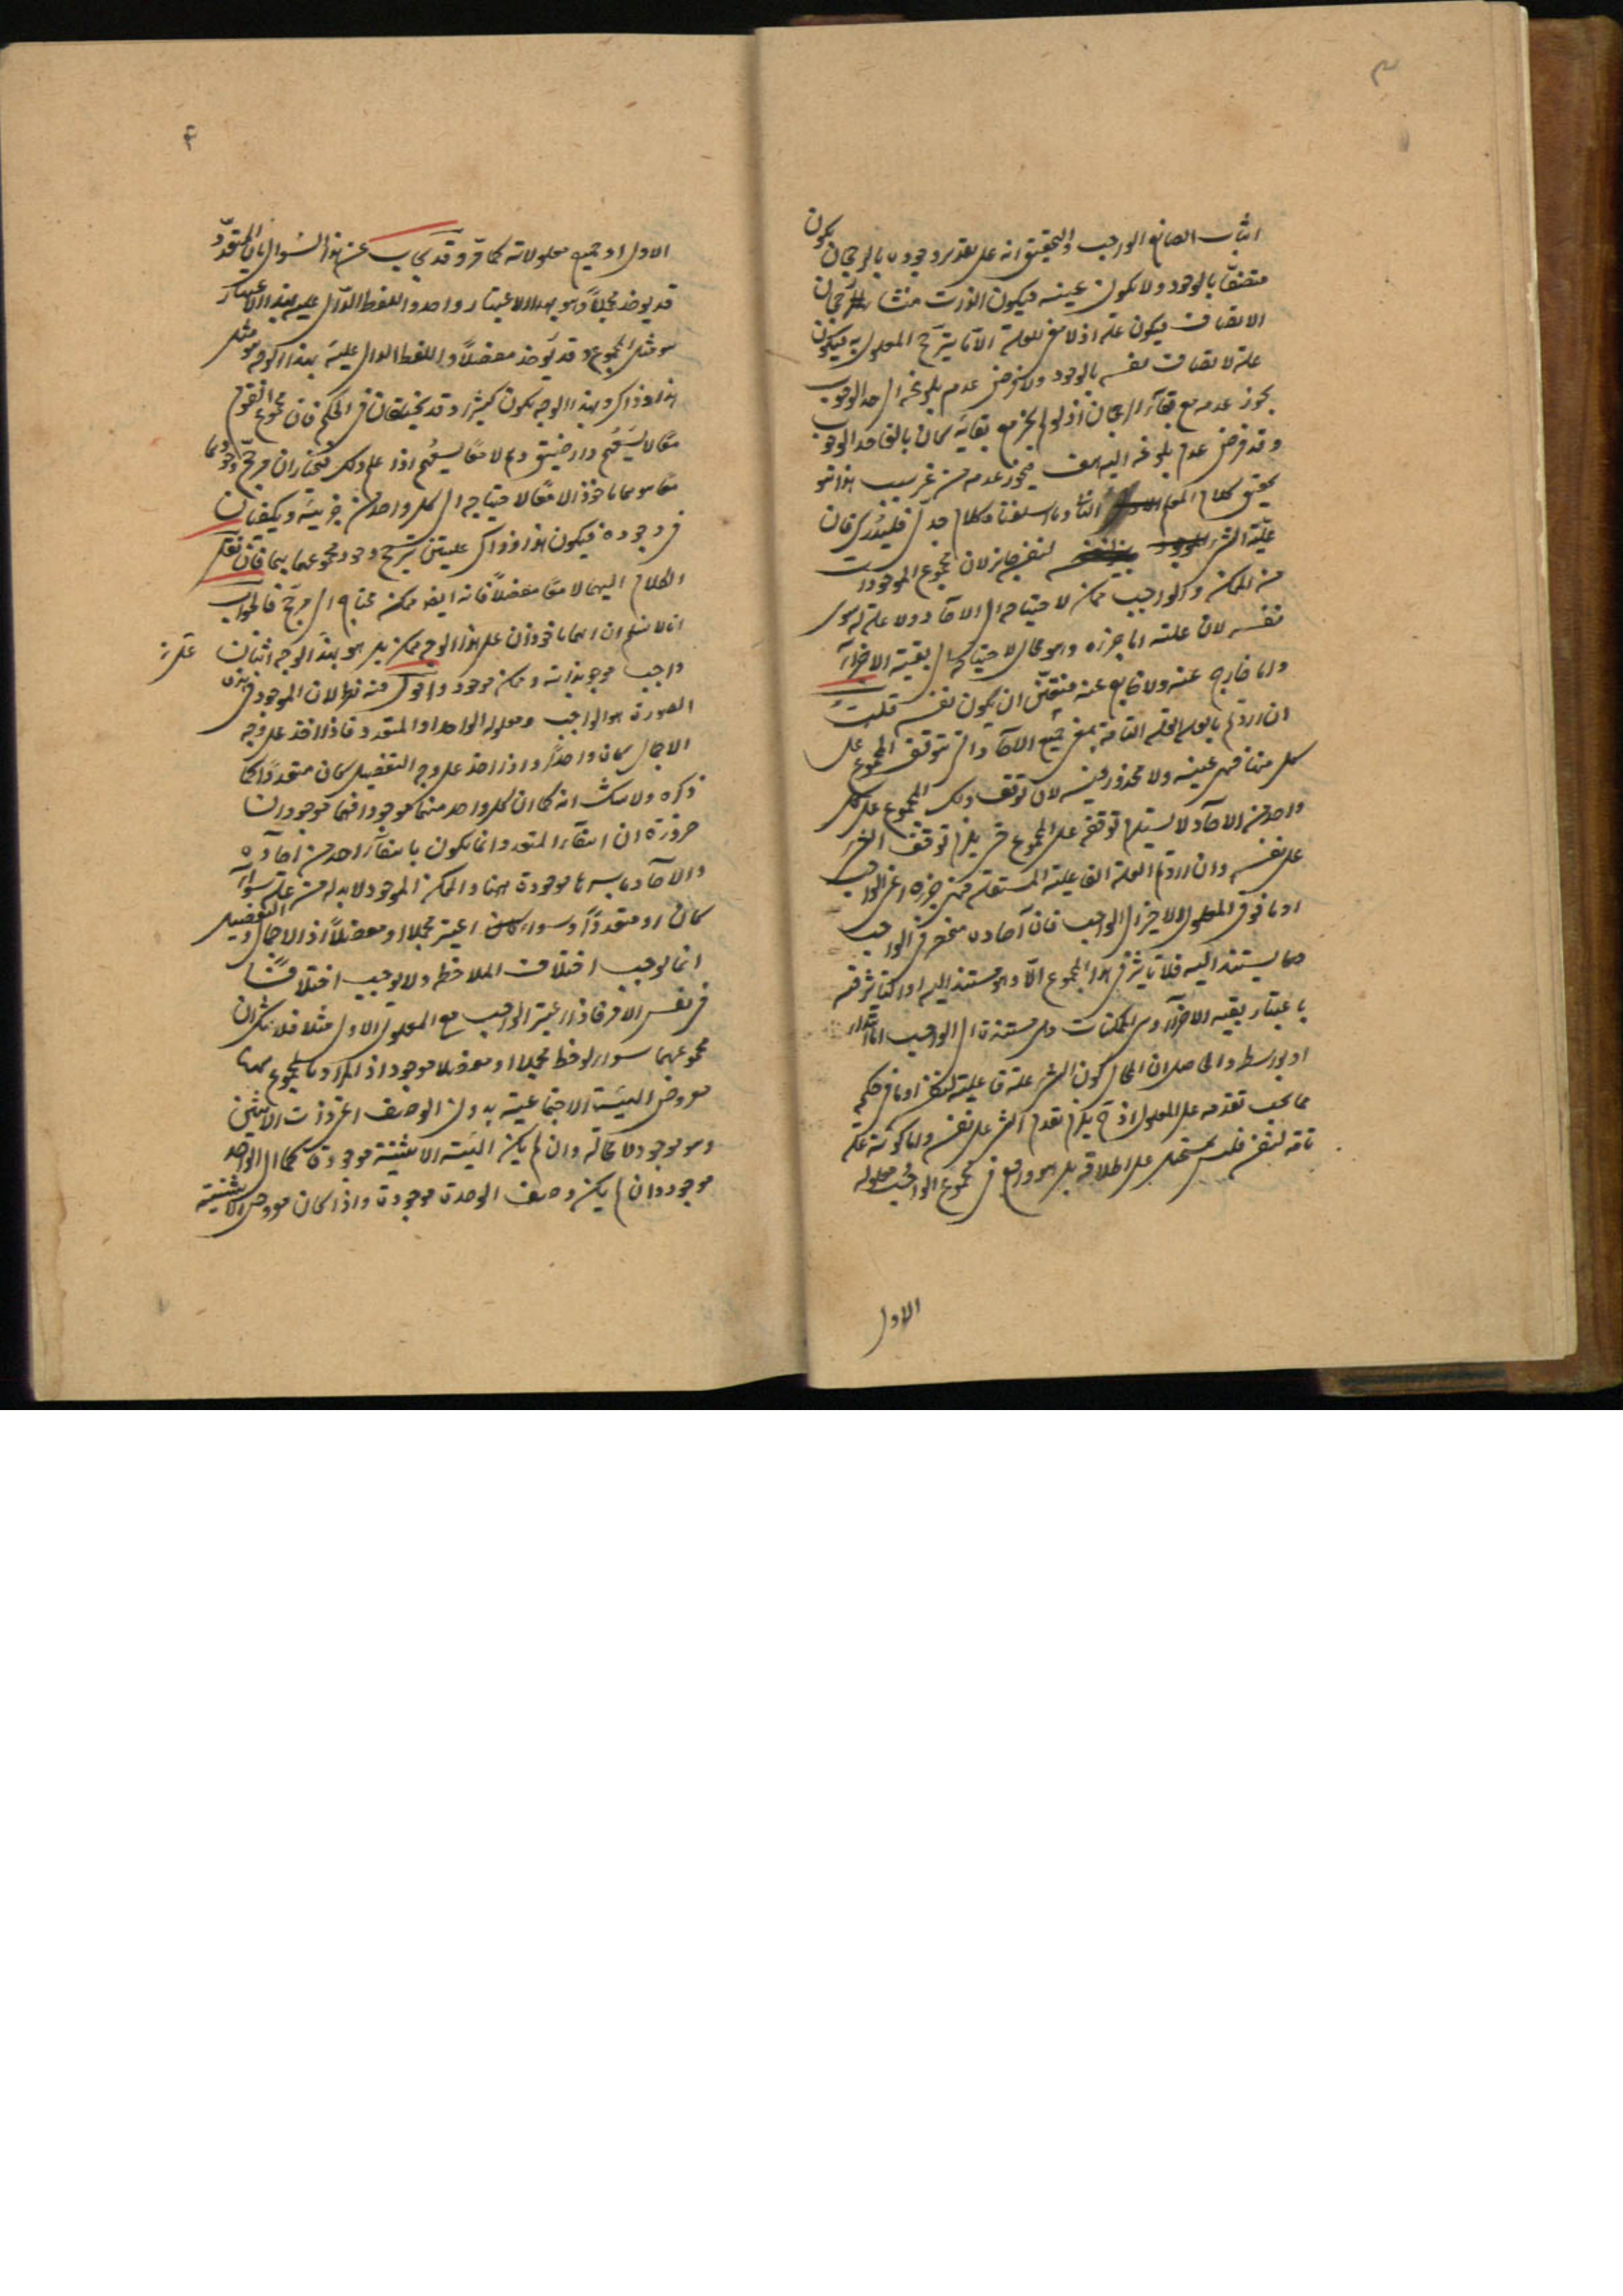 ٣
اثبات الصانع الواجب والتحقيق انه على تقدير وجوده بالرجحان يكون
متصفا بالوجود ولا يكون عينه فيكون الذات منشأ لرجحان
الاتصاف فيكون علة اذ لا معنى للعلة الا ما يترجح المعلول به فيكون
علة لاتصاف نفسه بالوجود ولنفرض عدم بلوغه الى حد الوجوب
يجوز عدمه مع بقاء الرجحان اذ لو لم يجز مع بقائه كان بالغا حد الوجوب
وقد فرض عدم بلوغه اليه هف فيجوز عدمه من غير سبب هذا هو
تحقيق كلام المعلم الثاني وما اسلفناه كلام جدلي فليتدبر فان
علية الشيء لنفسه جائز لان مجموع الموجودات
من الممكن والواجب ممكن لاحتياجه الى الآحاد ولا علة له سوى
نفسه لان علته اما جزءه وهو محال لاحتياجه الى بقية الاجزاء
واما خارج عنه ولا خارج عنه فتعين ان يكون نفسه قلت
ان اردتم بالعلة العلة التامة بمعنى جميع الآحاد التي يتوقف المجموع على
كل منها فهي عينه ولا محذور فيه لان توقف ذلك المجموع على كل
واحد من الآحاد لا يستلزم توقفه على المجموع حتى يلزم توقف الشيء
على نفسه وان اردتم العلة الفاعلية المستقلة فهي جزءه اعني الواجب
او ما فوق المعلول الاخير الى الواجب فان آحاده منحصر في الواجب
وما يستند اليه فلا تأثير في هذا المجموع الا وهو مستند اليه او
باعتبار بقية الاجزاء وهي الممكنات وهي مستندة الى الواجب اما ابتداء
او بواسطة والحاصل ان المحال كون الشيء علة فاعلية لنفسه او ما في حكمه
مما يجب تقدمه على المعلول اذ ح يلزم تقدم الشيء على نفسه واما كونه علة
تامة لنفسه فليس بمستحيل على اطلاقه بل هو واقع في مجموع الواجب ومعلوله
الاول
٤
الاول او جميع معلولاته كما مر وقد يجاب عن هذا السؤال بان المتعدد
قد يؤخذ مجملا وهو بهذا الاعتبار واحد واللفظ الدال عليه بهذا الاعتبار
هو مثل المجموع وقد يؤخذ مفصلا واللفظ الدال عليه بهذا الوجه هو مثل
هذا وذاك وبهذا الوجه يكون كثيرا وقد يختلفان في الحكم فان مجموع القوم
معا لا يسعهم دار ضيق وهم لا معا يسعهم اذا علم ذلك فيختار ان مرجح وجودهما
معا هو هما ماخوذ الا معا لاحتياجه الى كل واحد من جزئيه ويكفيان
في وجوده فيكون هذا وذاك علتين يترجح وجود مجموعهما بهما فان نقل
الكلام اليهما لا معا مفصلا فانه ايضا ممكن محتاج الى مرجح فالجواب
انا لا نسلم ان هما ماخوذان على هذا الوجه ممكن بل هو بهذا الوجه اثنان
واجب موجود بذاته وممكن موجود واقول فيه نظر لان الموجود في هذه
الصورة هو الواجب ومعلوله الواحد او المتعدد فاذا اخذ على وجه
الاجمال كان واحدا واذا اخذ على وجه التفصيل كان متعددا كما
ذكره ولا شك انه كما ان كل واحد منهما موجود فهما موجودان
ضرورة ان انتفاء المتعدد انما يكون بانتفاء واحد من آحاده
والآحاد باسرها موجودة ههنا والممكن الموجود لا بد له من علة سواء
كان او متعددا وسواء اعتبر مجملا او مفصلا اذ الاجمال والتفصيل
انما يوجب اختلاف الملاحظة ولا يوجب اختلافا
في نفس الامر فاذا اعتبر الواجب مع المعلول الاول مثلا فلا شك ان
مجموعهما سواء لوحظ مجملا او مفصلا موجود اذ المراد بالمجموع ههنا
معروض الهيئة الاجتماعية بدون الوصف اعني ذات الاثنين
وهو موجود لا محالة وان لم يكن الهيئة الاثنينية موجودة كما ان الواحد
موجود وان لم يكن وصف الوحدة موجودة واذا كان معروض الاثنينية